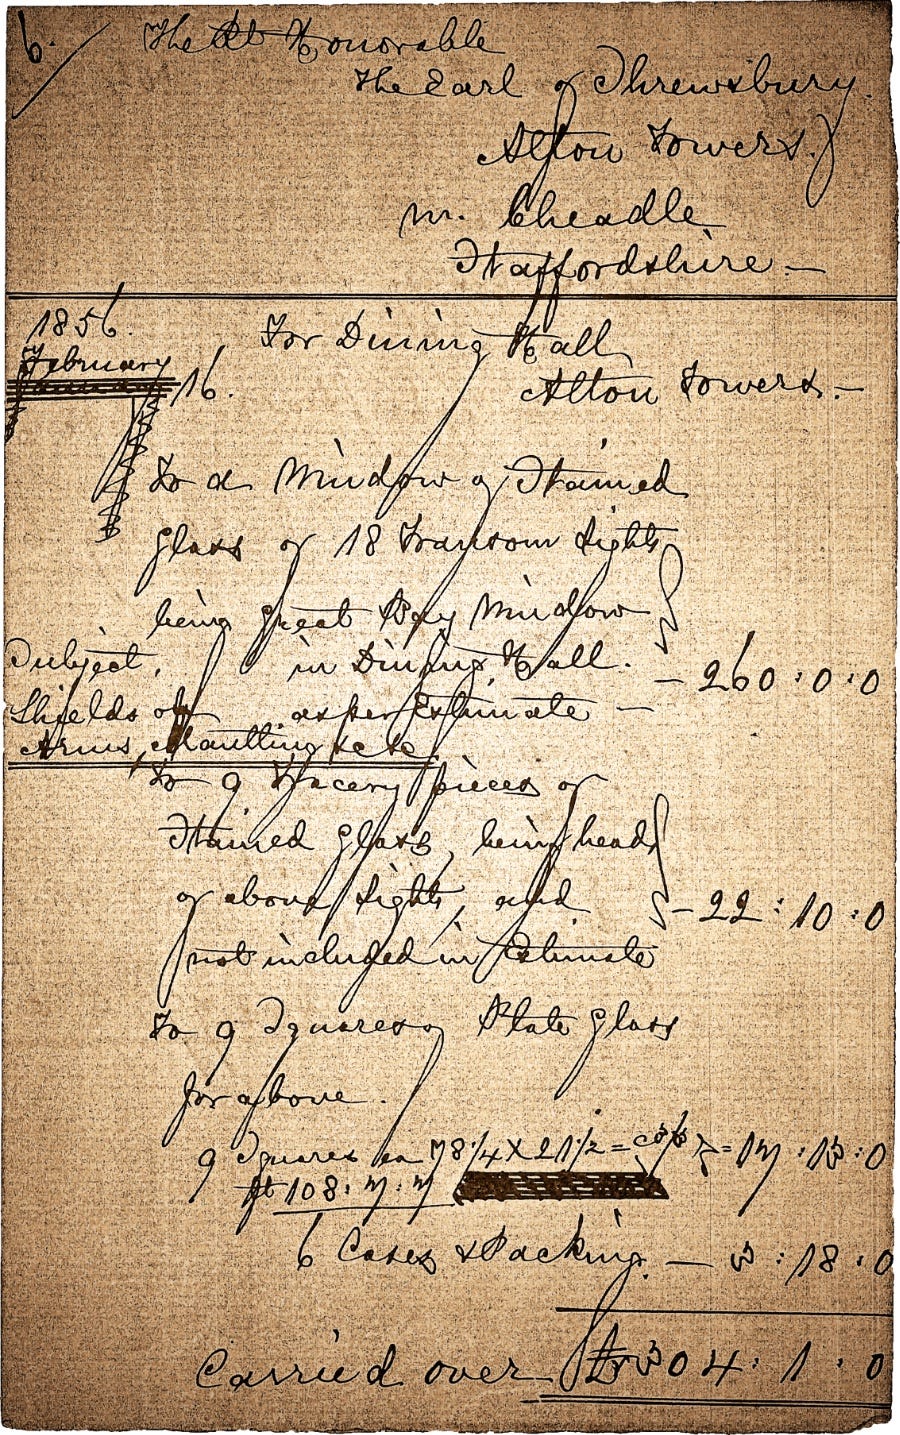 6.
The Rt Honorable
The Earl of Shrewsbury.
Alton Towers.
nr. Cheadle
Staffordshire —
1856.
February 16.
For Dining Hall
Alton Towers. —
To a Window of Stained
Glass of 18 Transom Lights
being great Bay Window
in Dining Hall.
as per Estimate — 260 : 0 : 0
Subject,
Shields of
Arms, Mantling &c &c
To 9 Tracery pieces of
Stained Glass, being heads
of above Lights, and
not included in Estimate — 22 : 10 : 0
To 9 Squares of Plate Glass
for above.
9 Squares in 78 1/4 x 21 1/2 = = 17 : 13 : 0
ft 108 : 7 : 7
6 Cases & Packing. — 3 : 18 : 0
Carried over £ 304 : 1 : 0